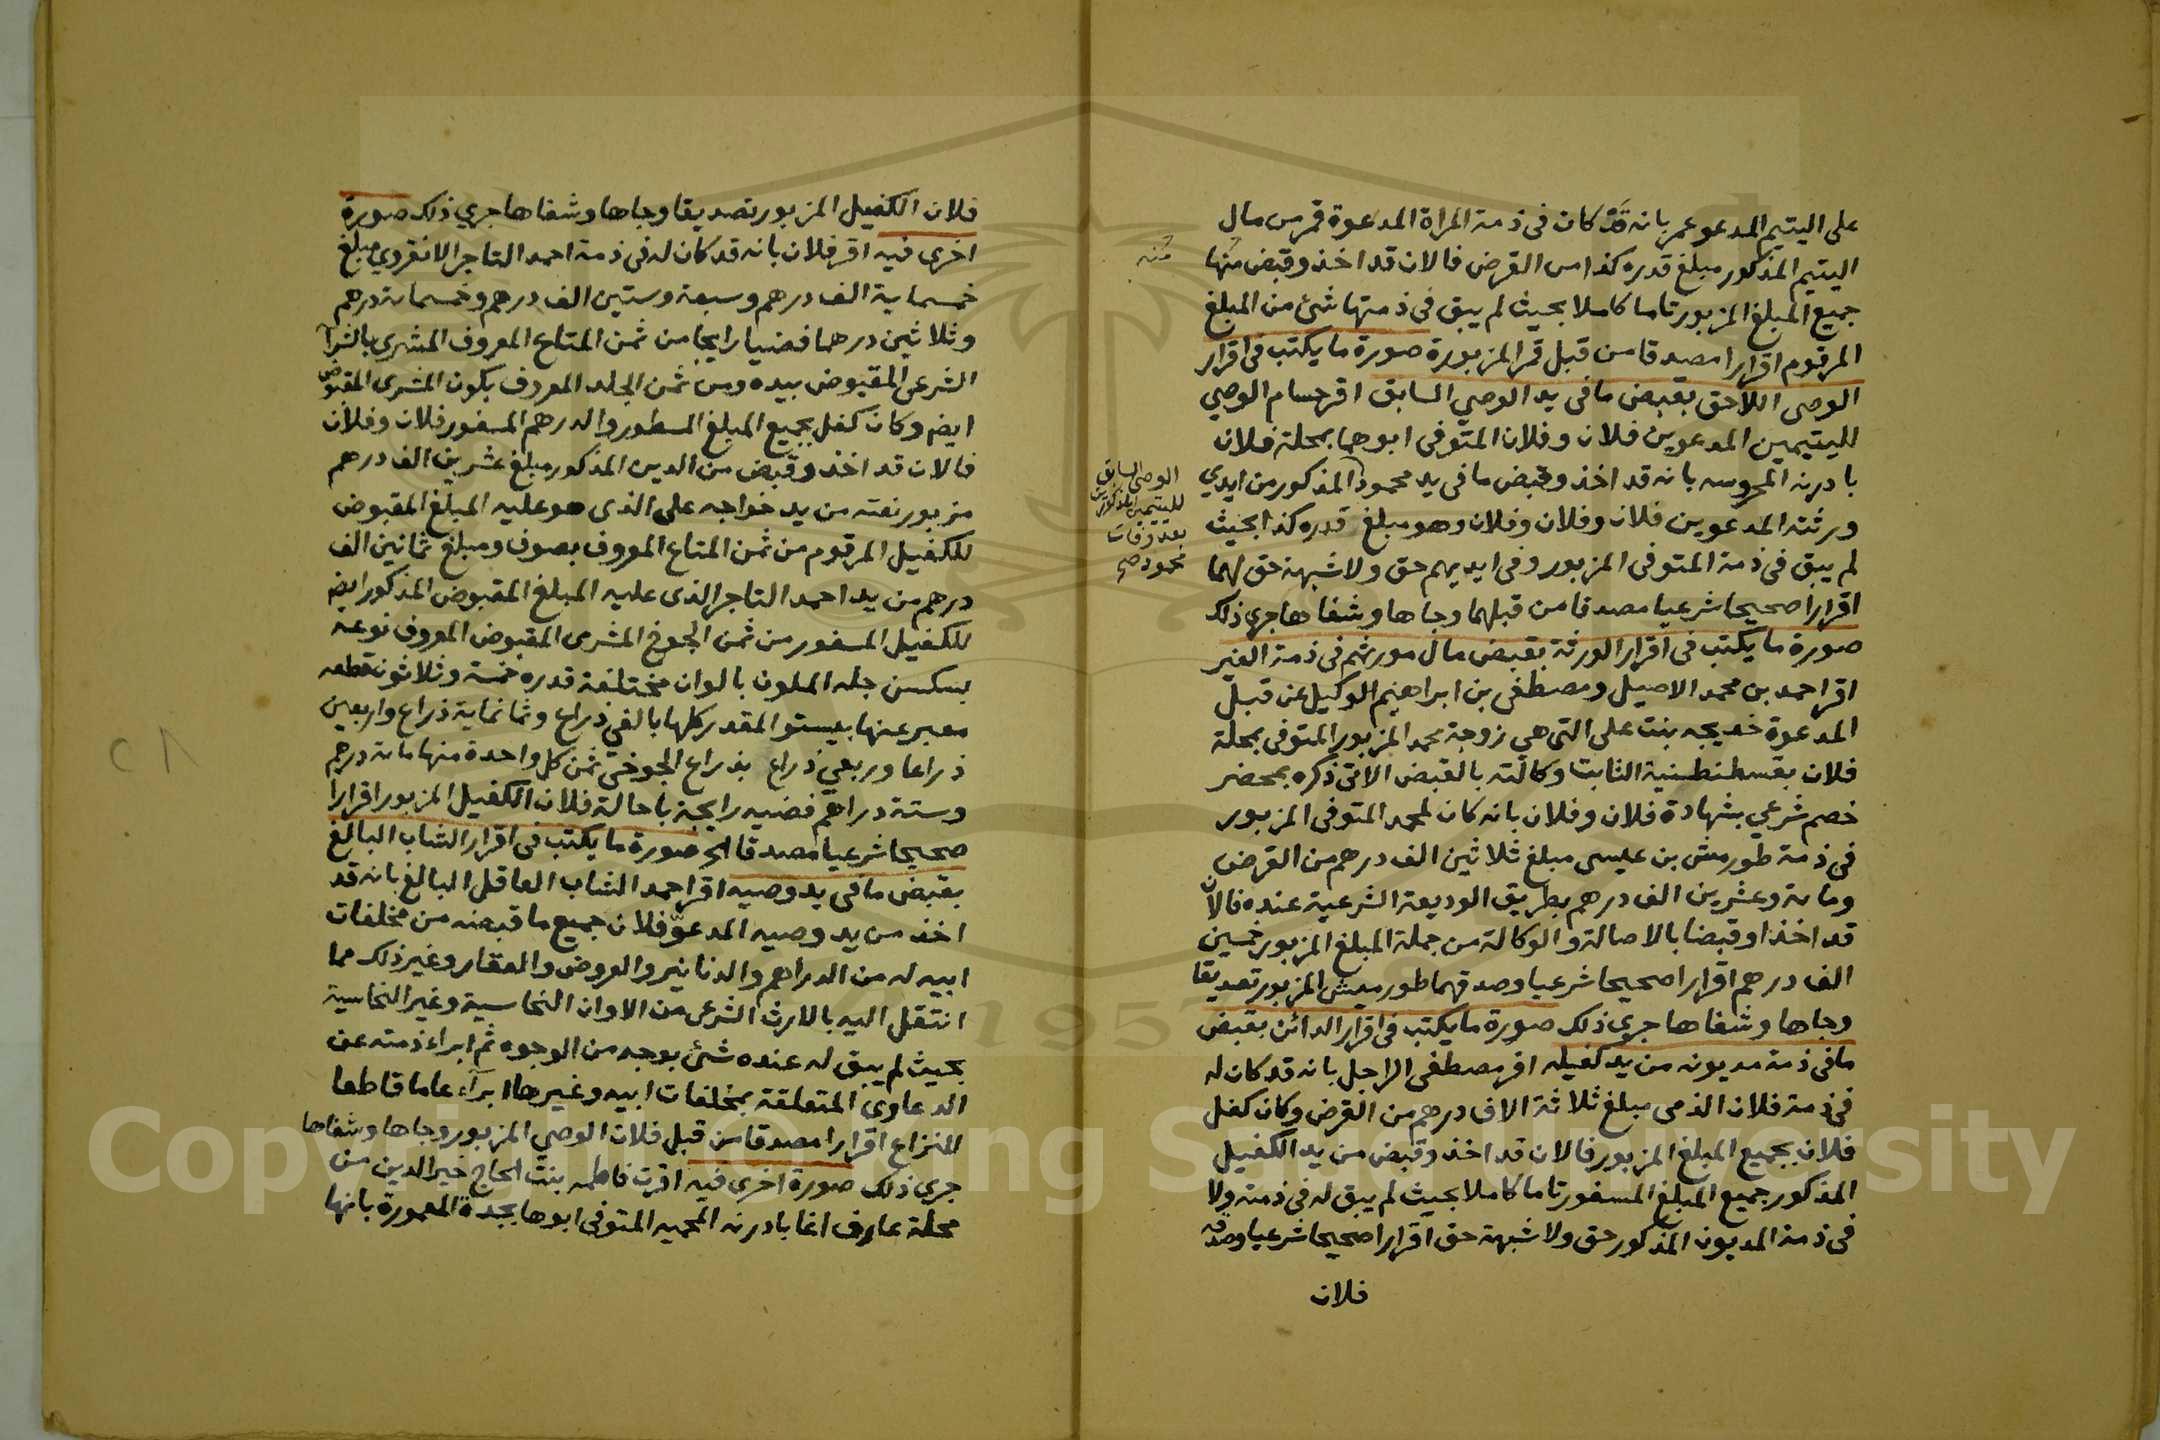 على اليتيم المدعو عمر بانه قد كان فى ذمة المراة المدعوة قمر من مال
اليتيم المذكور مبلغ قدره كذا من القرض فالان قد اخذ وقبض منها
منه
جميع المبلغ المزبور تاما كاملا بحيث لم يبق فى ذمتها شئ من المبلغ
المرقوم اقرارا مصدقا من قبل قمر المزبورة صورة ما يكتب فى اقرار
الوصى اللاحق بقبض ما فى يد الوصي السابق اقر حسام الوصي
لليتيمين المدعوين فلان وفلان المتوفى ابوهما بمحلة فلان
بادرنه المحروسه بانه قد اخذ وقبض ما فى يد محمود المذكور من ايدي
الوصى السابق
لليتيمين المذكورين
بعد وفات
محمود صح
ورثته المدعوين فلان وفلان وفلان وهو مبلغ قدره كذا بحيث
لم يبق فى ذمة المتوفى المزبور وفى ايديهم حق ولا شبهة حق لهما
اقرارا صحيحا شرعيا مصدقا من قبلهما وجاها وشفاها جري ذلك
صورة ما يكتب فى اقرار الورثة بقبض مال مورثهم فى ذمة الغير
اقر احمد بن محمد الاصيل ومصطفى بن ابراهيم الوكيل عن قبل
المدعوة خديجه بنت على التى هي زوجة محمد المزبور المتوفى بمحلة
فلان بقسطنطينية الثابت وكالته بالقبض الاتى ذكره بمحضر
خصم شرعي بشهادة فلان وفلان بانه كان لمحمد المتوفى المزبور
فى ذمة طورمش بن عيسى مبلغ ثلاثين الف درهم من القرض
ومائة وعشرين الف درهم بطريق الوديعة الشرعية عنده فالان
قد اخذا وقبضا بالاصالة والوكالة من جملة المبلغ المزبور خمسين
الف درهم اقرارا صحيحا شرعيا وصدقهما طورميش المزبور تصديقا
وجاها وشفاها جري ذلك صورة ما يكتب فى اقرار الدائن بقبض
ما فى ذمة مديونه من يد كفيله اقر مصطفى الراجل بانه قد كان له
فى ذمة فلان الذمى مبلغ ثلاثة الاف درهم من القرض وكان كفل
فلان بجميع المبلغ المزبور فالان قد اخذ وقبض من يد الكفيل
المذكور جميع المبلغ المسفور تاما كاملا بحيث لم يبق له فى ذمته ولا
فى ذمة المديون المذكور حق ولا شبهة حق اقرارا صحيحا شرعيا وصدقه
فلان
فلان الكفيل المزبور تصديقا وجاها وشفاها جري ذلك صورة
اخرى فيه اقر فلان بانه قد كان له فى ذمة احمد التاجر الانقروي مبلغ
خمسماية الف درهم وسبعة وستين الف درهم وخمسمائة درهم
وثلاثين درهما فضيا رايجا من ثمن المتاع المعروف المشرى بالشرآ
الشرعى المقبوض بيده ومن ثمن الجلد المعروف بكون المشرى المقبوض
ايضا وكان كفل بجميع المبلغ المسطور والدرهم المسفور فلان وفلان
فالان قد اخذ وقبض من الدين المذكور مبلغ عشرين الف درهم
مزبور نعته من يد خواجه على الذى هو عليه المبلغ المقبوض
للكفيل المرقوم من ثمن المتاع المعروف بصوف ومبلغ ثمانين الف
درهم من يد احمد التاجر الذى عليه المبلغ المقبوض المذكور ايضا
للكفيل المسفور من ثمن الجوخ المشرى المقبوض المعروف نوعه
جله الملون بالوان مختلفة قدره خمسة وثلاثون قطعه
معبر عنها بيستو المقدر كلها بالفي ذراع وثمانماية ذراع واربعين
ذراعا وربعي ذراع بذراع الجوخى ثمن كل واحدة منها مائة درهم
وستة دراهم فضيه رايجة باحالة فلان الكفيل المزبور اقرارا
صحيحا شرعيا مصدقا الخ صورة ما يكتب فى اقرار الشاب البالغ
بقبض ما فى يد وصيه اقر احمد الشاب العاقل البالغ بانه قد
اخذ من يد وصيه المدعو فلان جميع ما قبضه من مخلفات
ابيه له من الدراهم والدنانير والعروض والعقار وغير ذلك مما
انتقل اليه بالارث الشرعى من الاوان النحاسية وغير النحاسية
بحيث لم يبق له عنده شئ بوجه من الوجوه ثم ابراء ذمته عن
الدعاوي المتعلقة بمخلفات ابيه وغيرها ابرآء عاما قاطعا
للنزاع اقرارا مصدقا من قبل فلان الوصي المزبور وجاها وشفاها
جري ذلك صورة اخرى فيه اقرت فاطمه بنت الحاج خير الدين من
محلة عارف اغا بادرنه المحميه المتوفى ابوها بجدة المعمورة بانها
٢٨
Copyright © King Saud University
1957